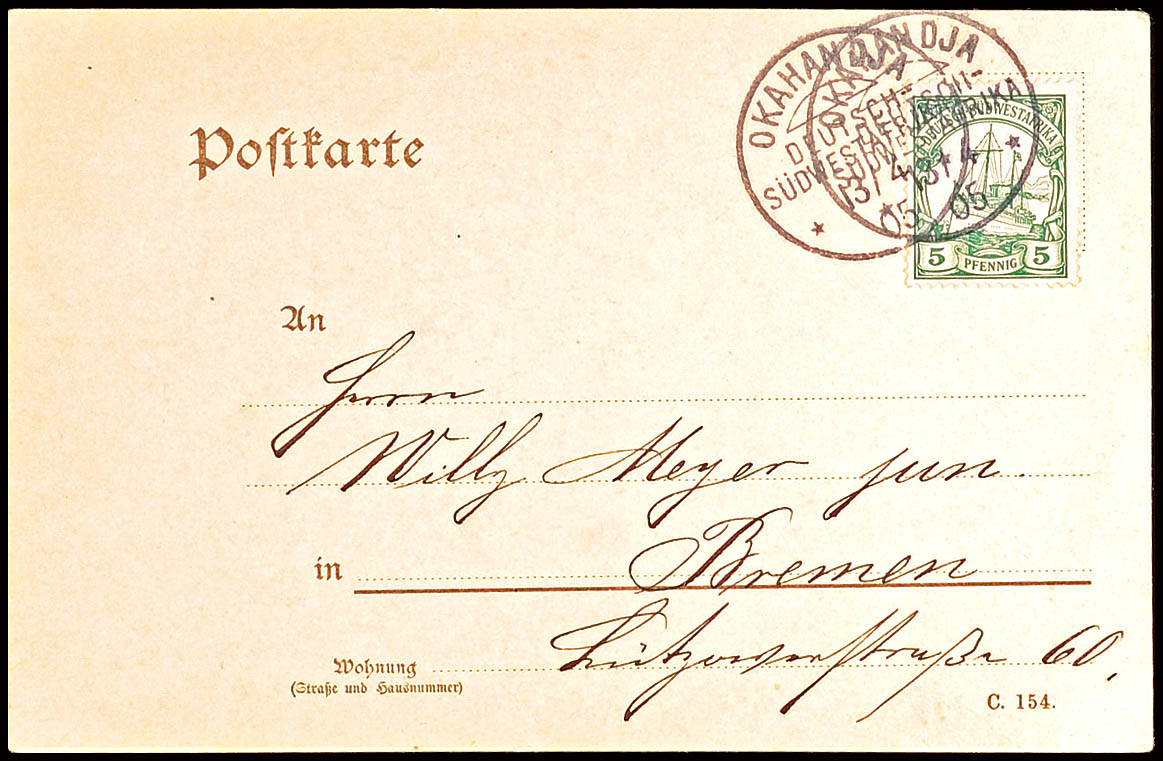 OKAHANDJA
DEUTSCH-
SÜDWESTAFRIKA
13/4
05
OKAHANDJA
DEUTSCH-
SÜDWESTAFRIKA
13/4
05
DEUTSCH-SÜDWESTAFRIKA
5 PFENNIG 5
Postkarte
An
Herrn
Willy Meyer jun.
in Bremen
Lützowerstraße 60,
Wohnung
(Straße und Hausnummer)
C. 154.